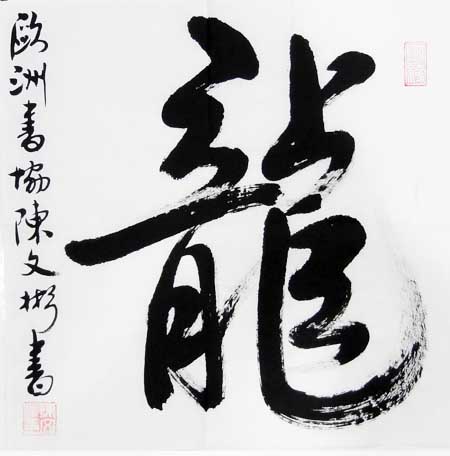 龍
歐洲書協陳文彬書